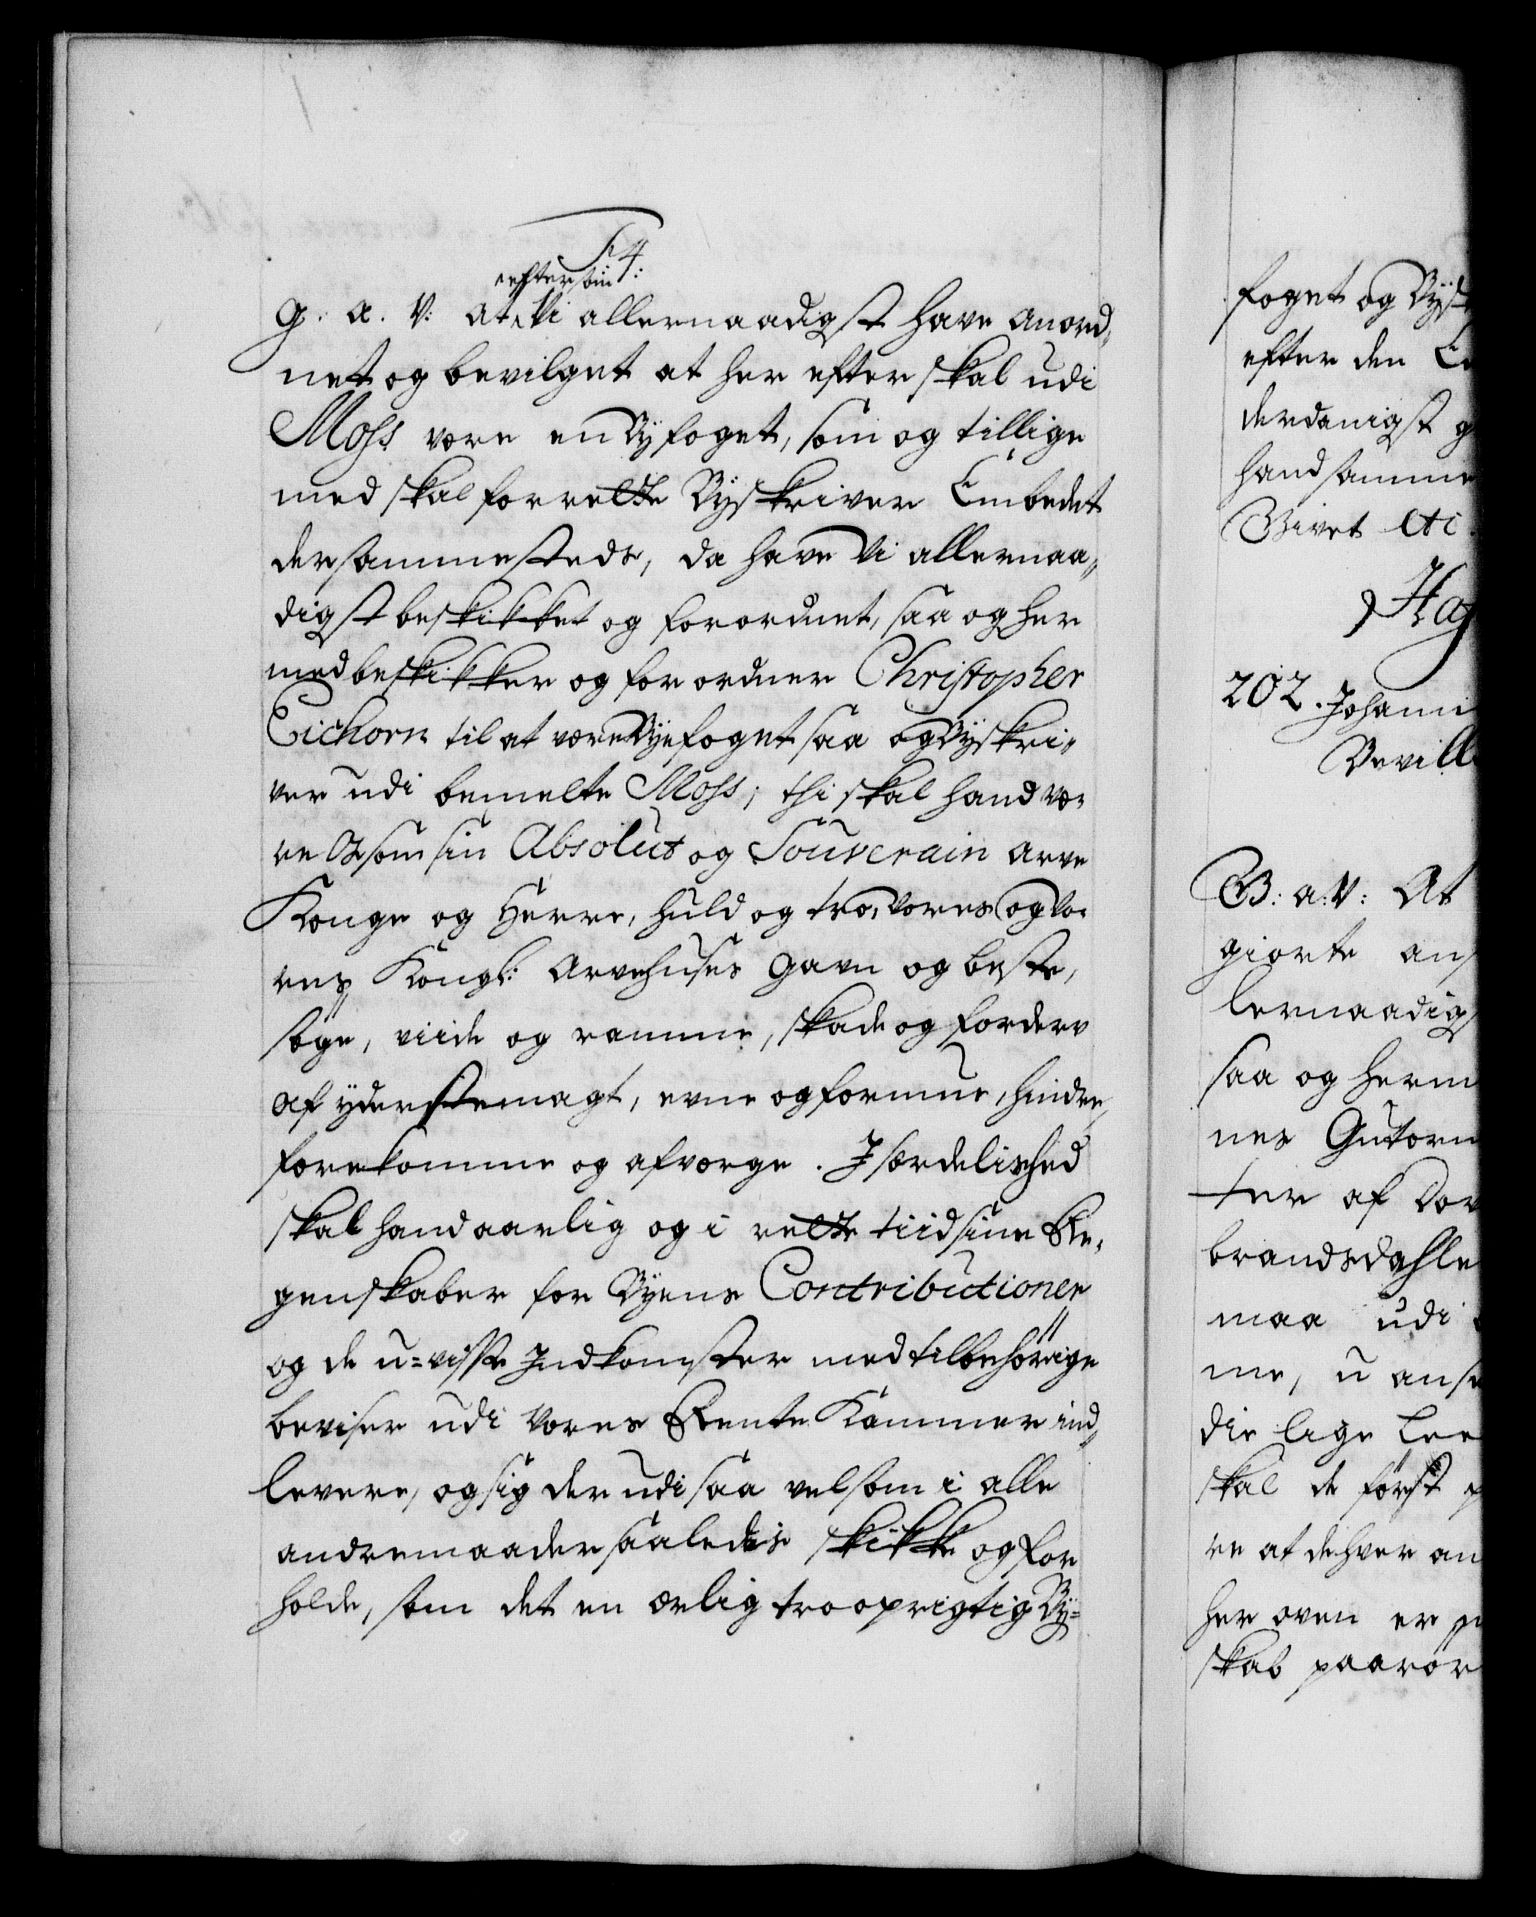 F4:
eftersom
G. A. V: At Vi allernaadigst have anord,
net og bevilget at her efter skal udi
Moss være en Byfoget, som og tillige
med skal forrette Byskriver Embedet
dersammesteds, da have Vi allernaa,,
digst beskikket og forordnet, saa og her
med beskikker og forordner Christopher
Eichorn til at være Byefoget saa og Byskri,,
ver udi bemelte Moss; thi skal hand væ-
re Os som sin Absolut og Souverain Arve
Konge og Herre, huld og tro, Vores og Vo-
res Kongl: Arvehuses gavn og beste,
søge, viide og ramme, skade og forderv
af yderste magt, evne og formue, hindre,
forekomme og afværge. Jsærdelished
skal hand aarlig og i rette tiid sine Re-
genskaber for Byens Contributioner
og de u=visse Jndkomster med tilbehørige
beviser udi Vores Rente Kammer ind,,
levere, og sig der udi saa vel som i alle
andre maader saaledis skikke og for
holde, som det en ærlig tro oprigtig By=
foget og Bysk
efter den
derdanigst g
hand samme
Givet etc.
Hag
202. Johann
Bevill
G: A: V: At
giorte ans
lernaadigs
saa og herm
nes Gutorm
ter af Dov
brandsdahle
maa udi
me, u anse
die lige Lee
skal de først p
re at de hver an
her oven er
skab paarør